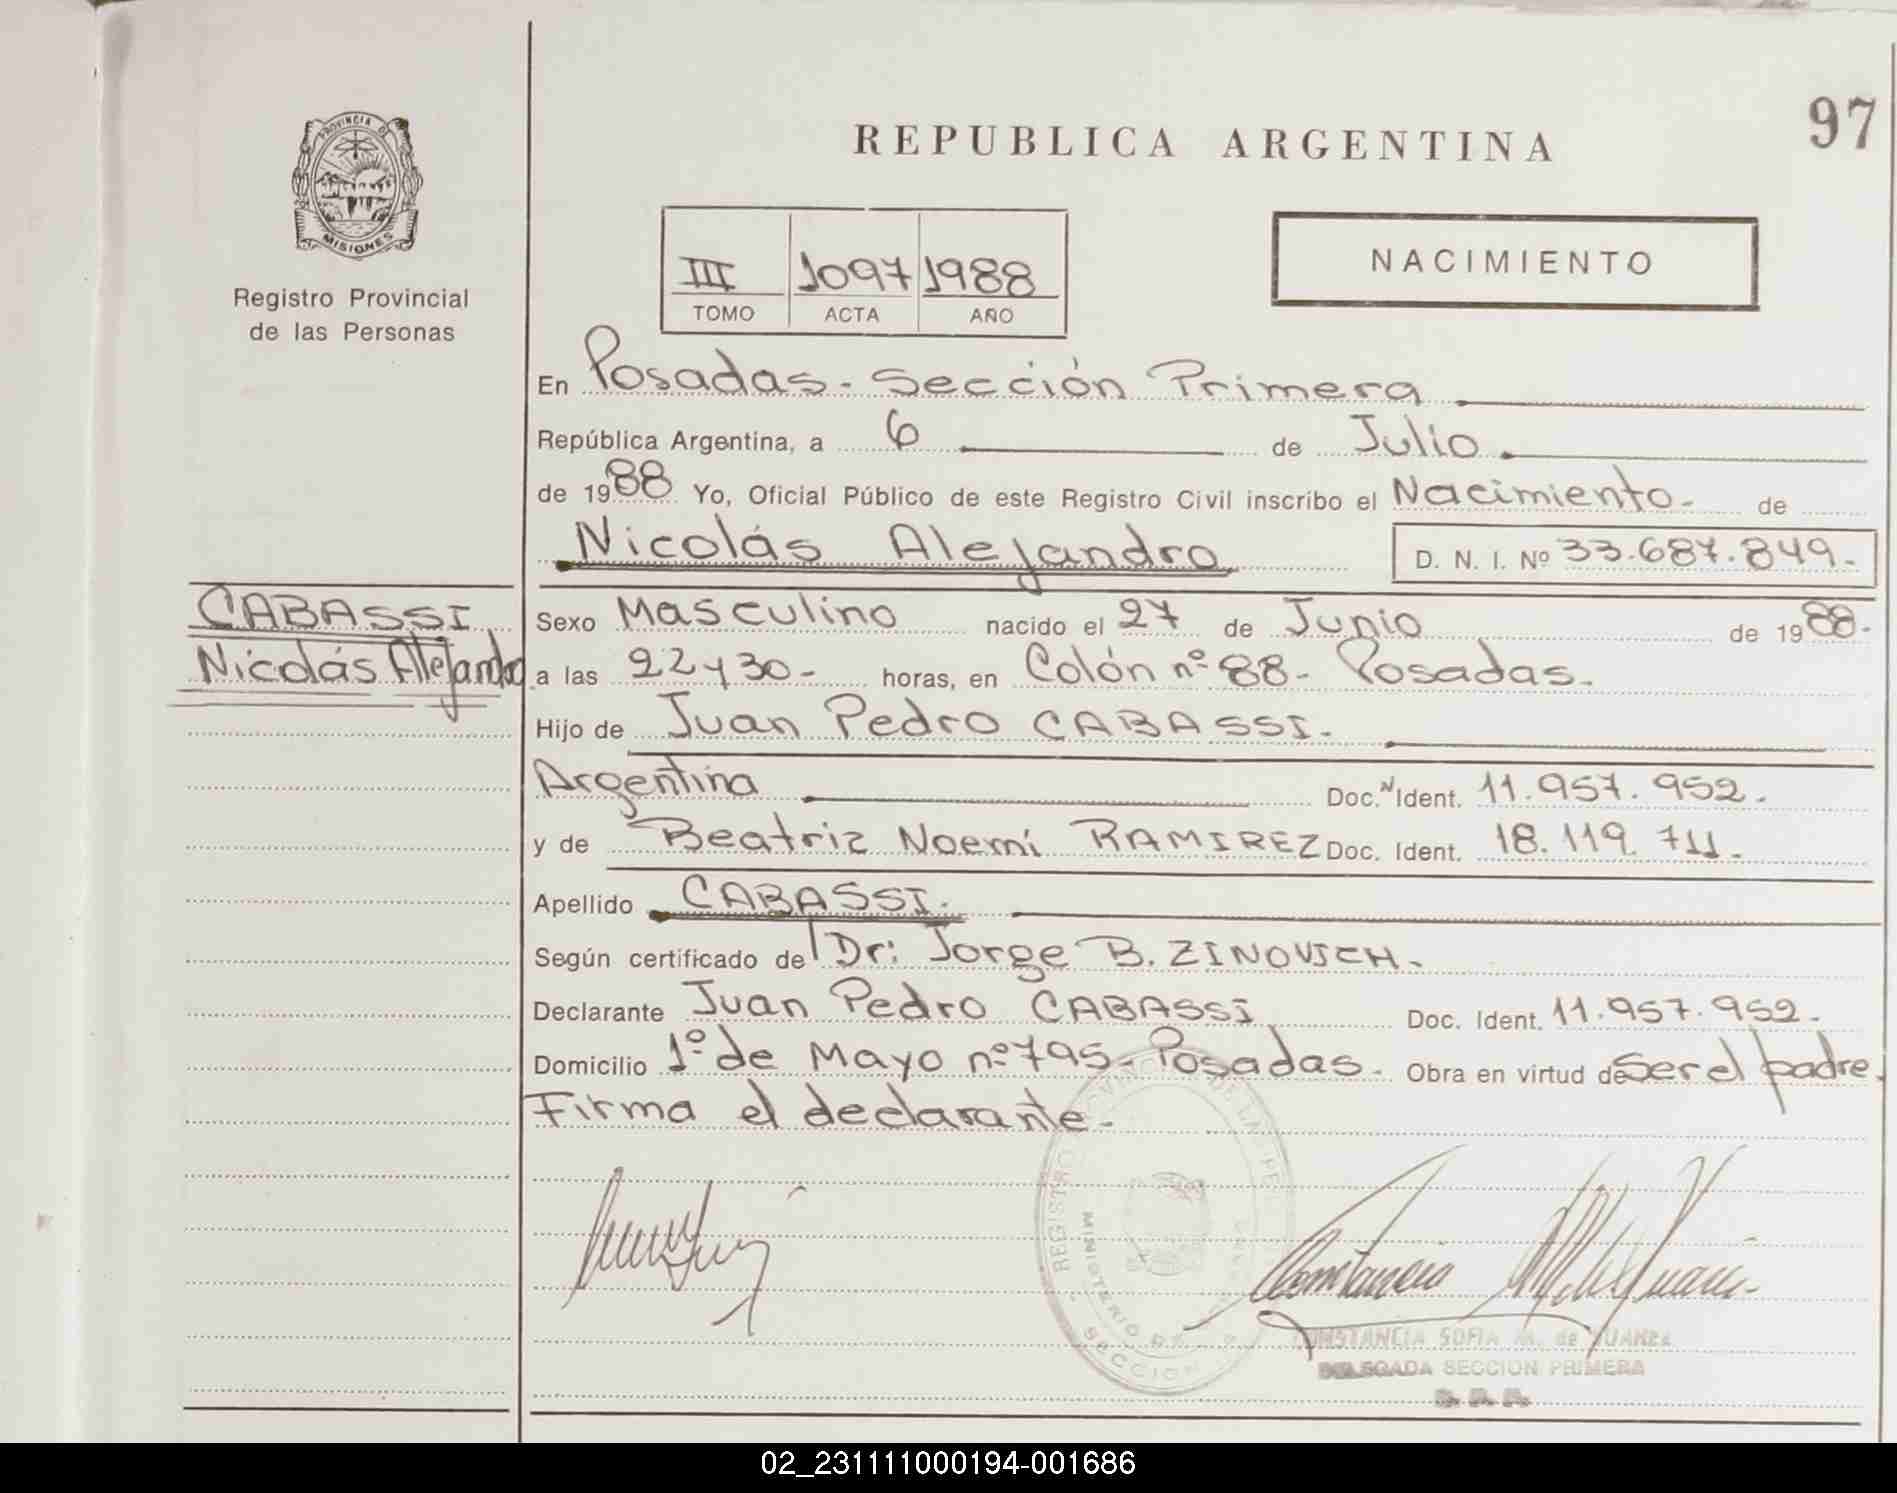 97
PROVINCIA DE
MISIONES
Registro Provincial
de las Personas
REPUBLICA ARGENTINA
III 1097 1988
TOMO ACTA AÑO
NACIMIENTO
En Posadas - Sección Primera
República Argentina, a 6 de Julio
de 1988 Yo, Oficial Público de este Registro Civil inscribo el Nacimiento - de
Nicolás Alejandro D. N. I. Nº 33.687.849.-
CABASSI
Nicolás Alejandro
Sexo Masculino nacido el 27 de Junio de 1988.-
a las 22 y 30 - horas, en Colón nº 88 - Posadas.
Hijo de Juan Pedro CABASSI.-
Argentina Doc. Ident. 11.957.952.
y de Beatriz Noemí RAMIREZ Doc. Ident. 18.119.711.-
Apellido CABASSI.
Según certificado del Dr: Jorge B. ZINOVICH.
Declarante Juan Pedro CABASSI Doc. Ident. 11.957.952.-
Domicilio 1º de Mayo nº 795 - Posadas. Obra en virtud de ser el padre.
Firma el declarante.-
REGISTRO PROVINCIAL DE LAS
MINISTERIO DE
SECCION
CONSTANCIA SOFIA M. de SUAREZ
DELEGADA SECCION PRIMERA
02_231111000194-001686